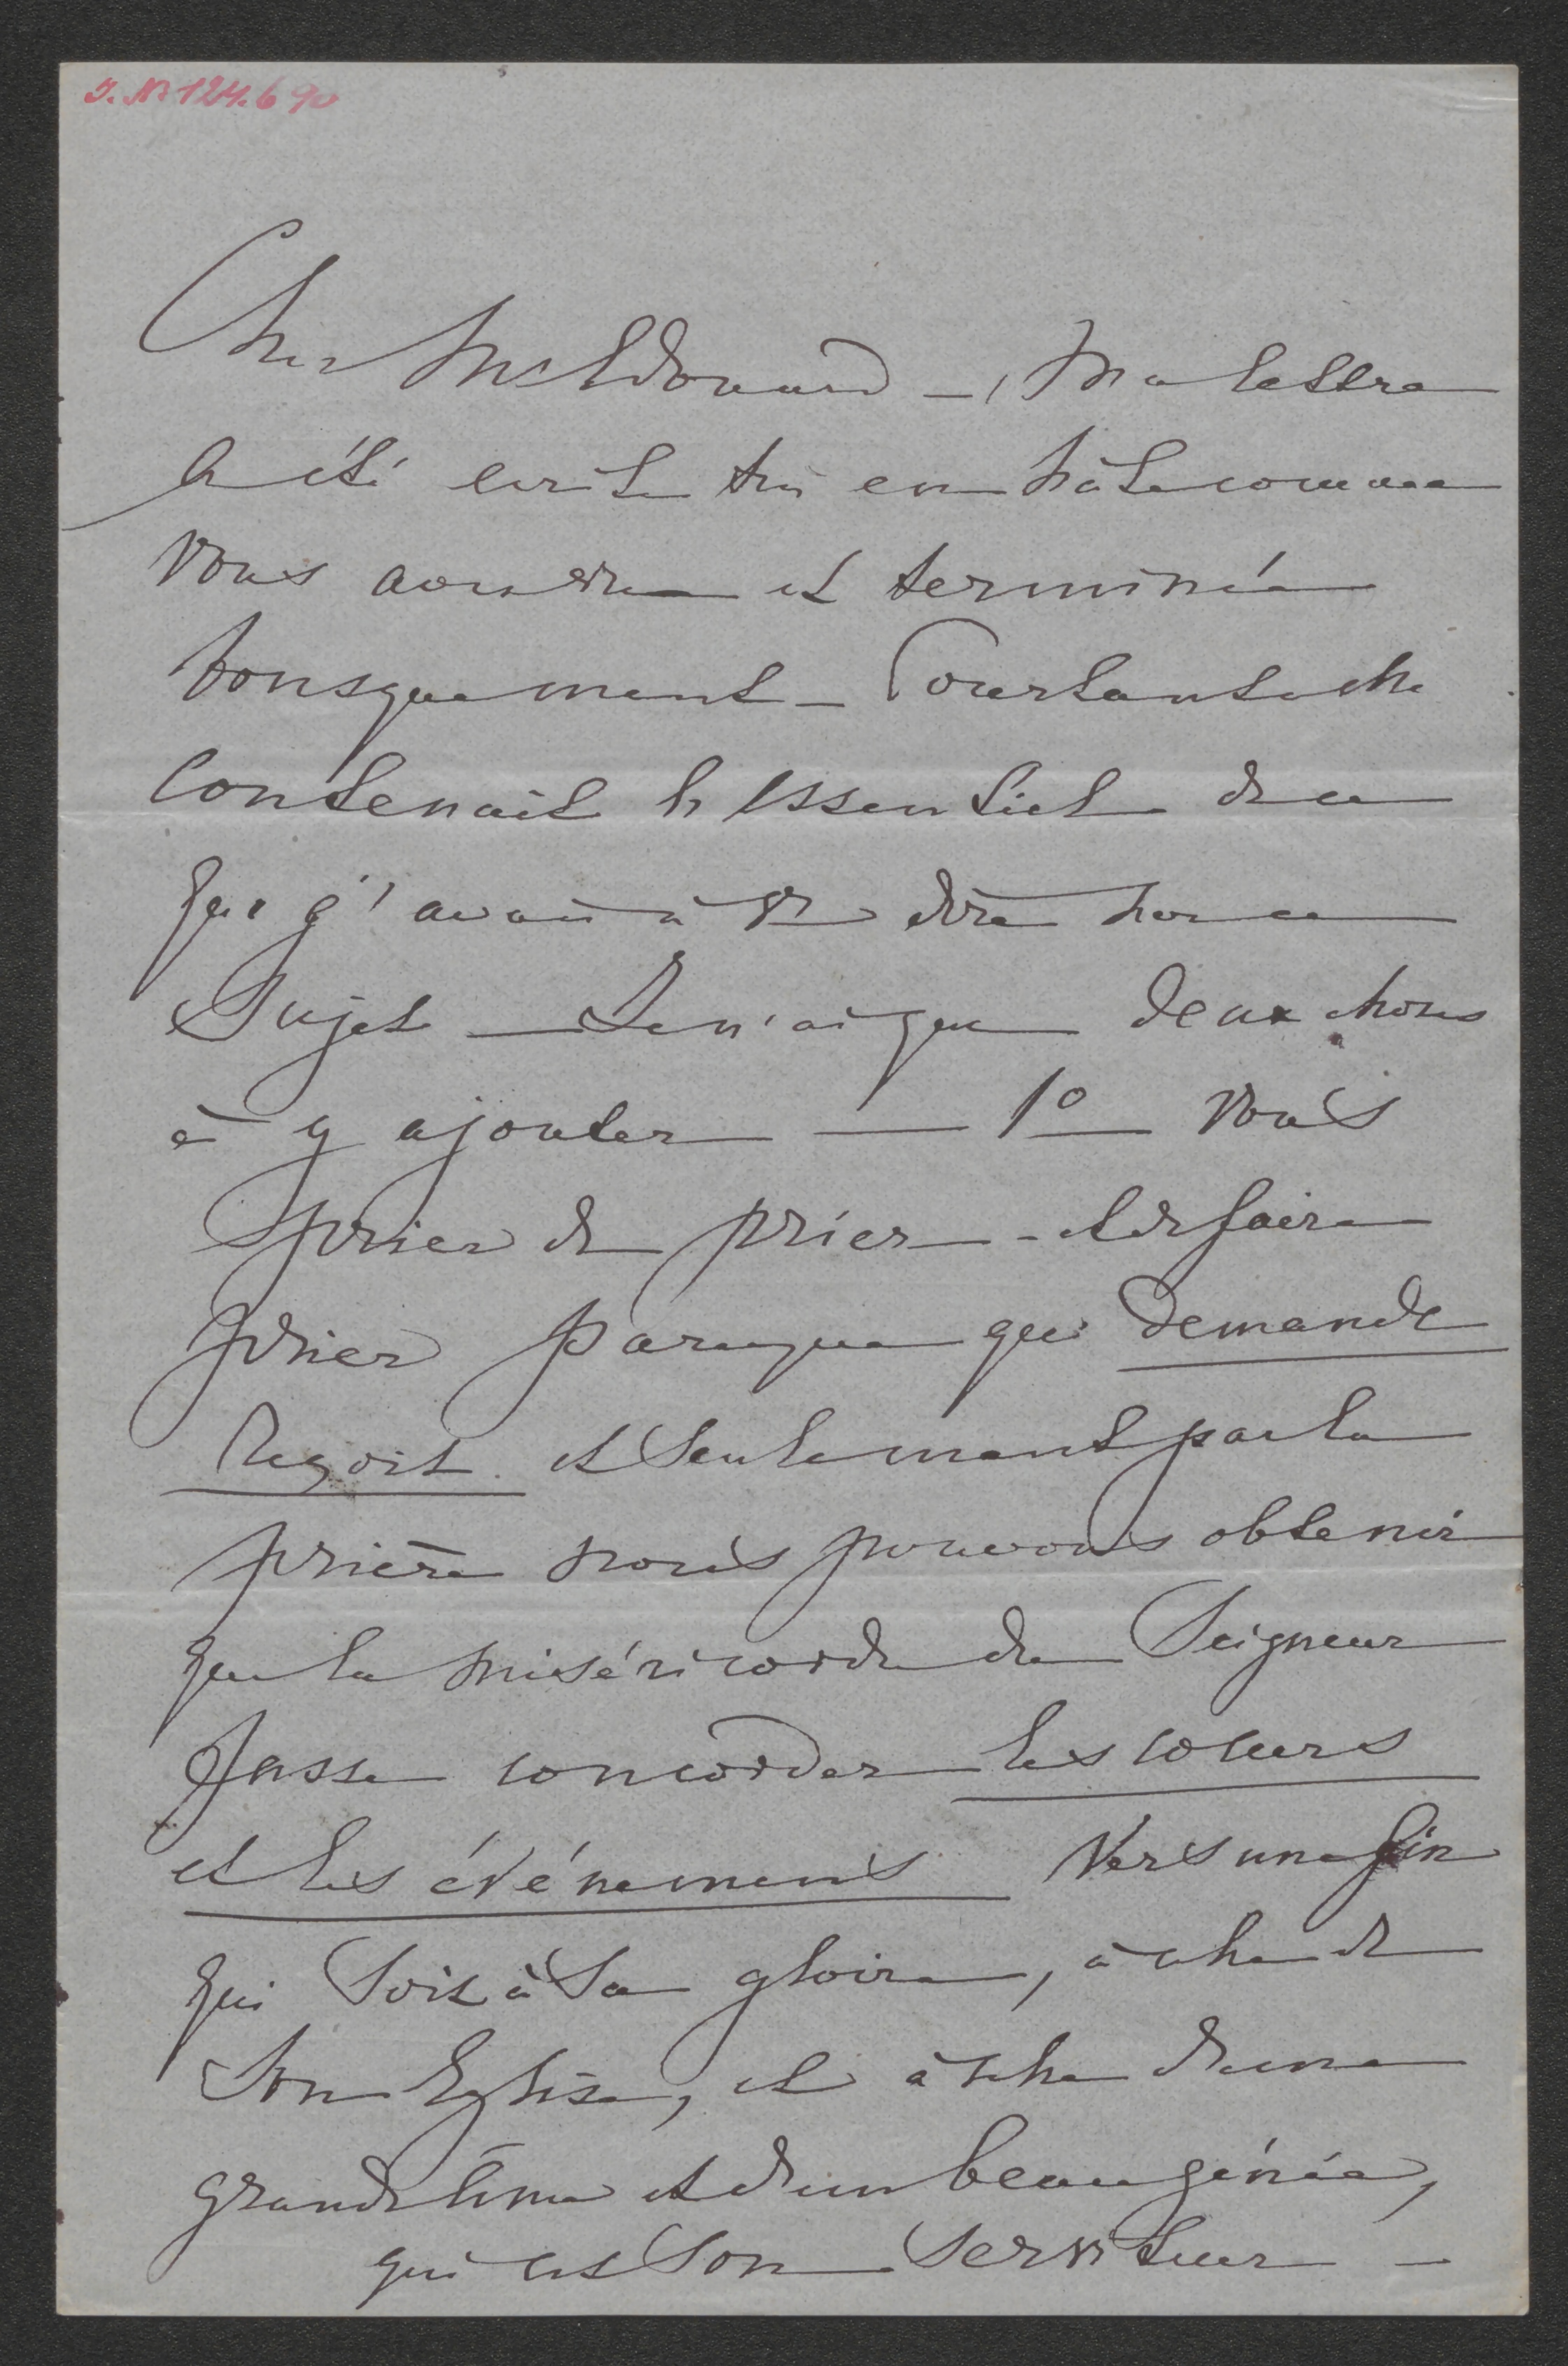 J. N. 124.690
Cher Mr Edouard —, Ma lettre
a été écrite très en hâte comme
vous aurez vu et terminée
brusquement — Pourtant elle
contenait l'essentiel de ce
que j'avais à vs dire sur ce
Sujet — Je n'ai que deux choses
à y ajouter — 1o Vous
prier de prier — et de faire
prier parceque qui demande
reçoit et Seulement par la
prière nous pouvons obtenir
que la miséricorde du Seigneur
fasse concorder les coeurs
et les événements vers une fin
qui Soit à Sa gloire, à celle de
Son Eglise, et à celle d'une
grande âme et d'un beau génie,
qui est Son Serviteur —